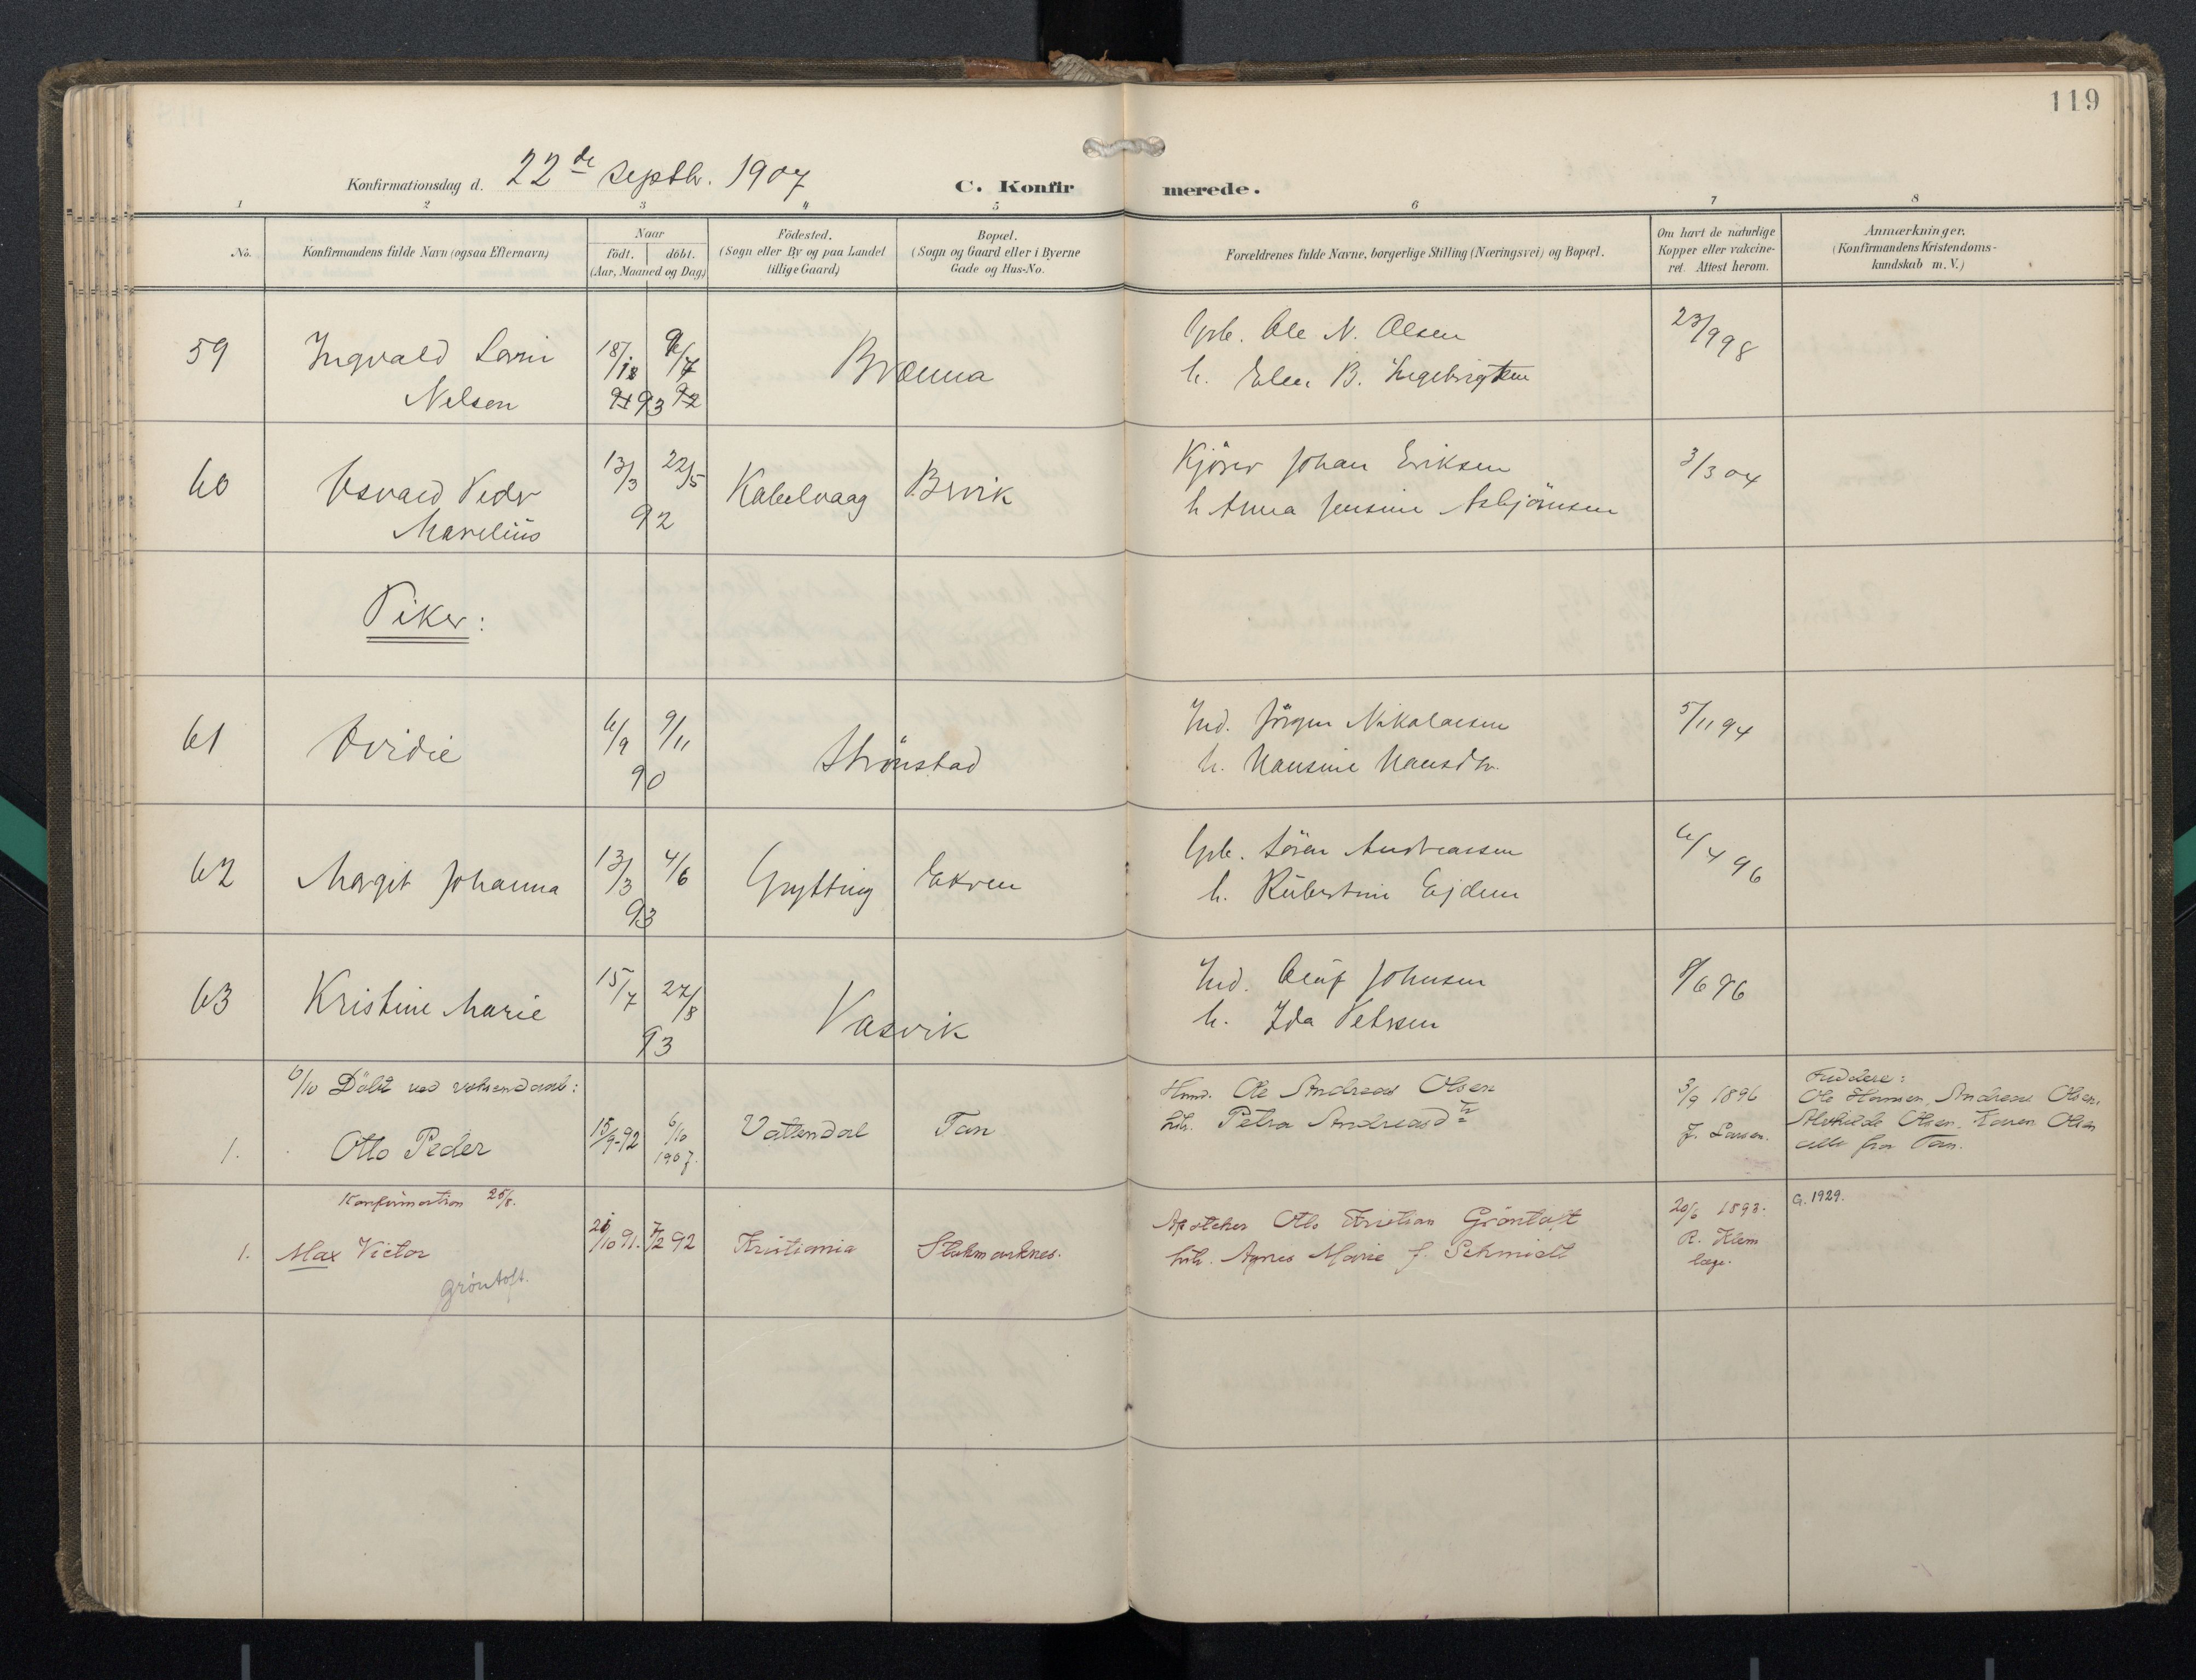 119
Konfirmationsdag d. 22de Septbr. 1907
C. Konfirmerede.
1 2 3 4 5 6 7 8
No.
Konfirmandens fulde Navn (ogsaa Efternavn)
Naar
født. døbt.
(Aar, Maaned og Dag)
Födested.
(Sogn eller By og paa Landet
tillige Gaard)
Bopæl.
(Sogn og Gaard eller i Byerne
Gade og Hus-No.
Forældrenes fulde Navne, borgerlige Stilling (Næringsvei) og Bopæl.
Om havt de naturlige
Kopper eller vakcine-
ret. Attest herom.
Anmærkninger.
(Konfirmandens Kristendoms-
kundskab m. V.)
59 Ingvald
Nelsen
93
Brænna
Ole N. Olsen
h. Elen B. Ingebrigtsen
23/9 98
60 Osvald Peder
Marelius
13/3 22/5
92
Kabelvaag
Brvik
Kjörer Johan Eriksen
h Anna Jensine Asbjörnsen
3/3 04
Piker:
61 Ovidie
6/9 9/11
90
Strönstad
Ind. Jörgen Nikolaisen
h. Hansine Hansdtr.
5/11 94
62 Margit Johanna
13/3 4/6
93
Grytting
Ekren
Grb. Sören Andreassen
h. Ejdem
6/4 96
63 Kristine Marie
15/7 27/8
93
Vasvik
Ind. Oluf Johnsen
h. Ida Petersen
8/6 96
6/10 Döbt ved voksendaab:
1. Otto Peder
15/9-92 6/10
1907.
Vattendal
Tan
Ole Andreas Olsen
htr. Petra Andreasdtr
3/9 1896
J. Larsen.
Faddere:
Ole Hansen, Andreas Olsen,
Mathilde Olsen, Karen Olsen
alle fra Tan.
Konfirmation 25/8.
1. Max Victor
Gröntoft.
/10 91. 7/2 92
Kristiania
Stokmarknes.
Apotheker Otto Kristian Gröntoft
htr. Agnes Marie f. Schmidt
20/6 1893.
R. Klem
læge.
G. 1929.